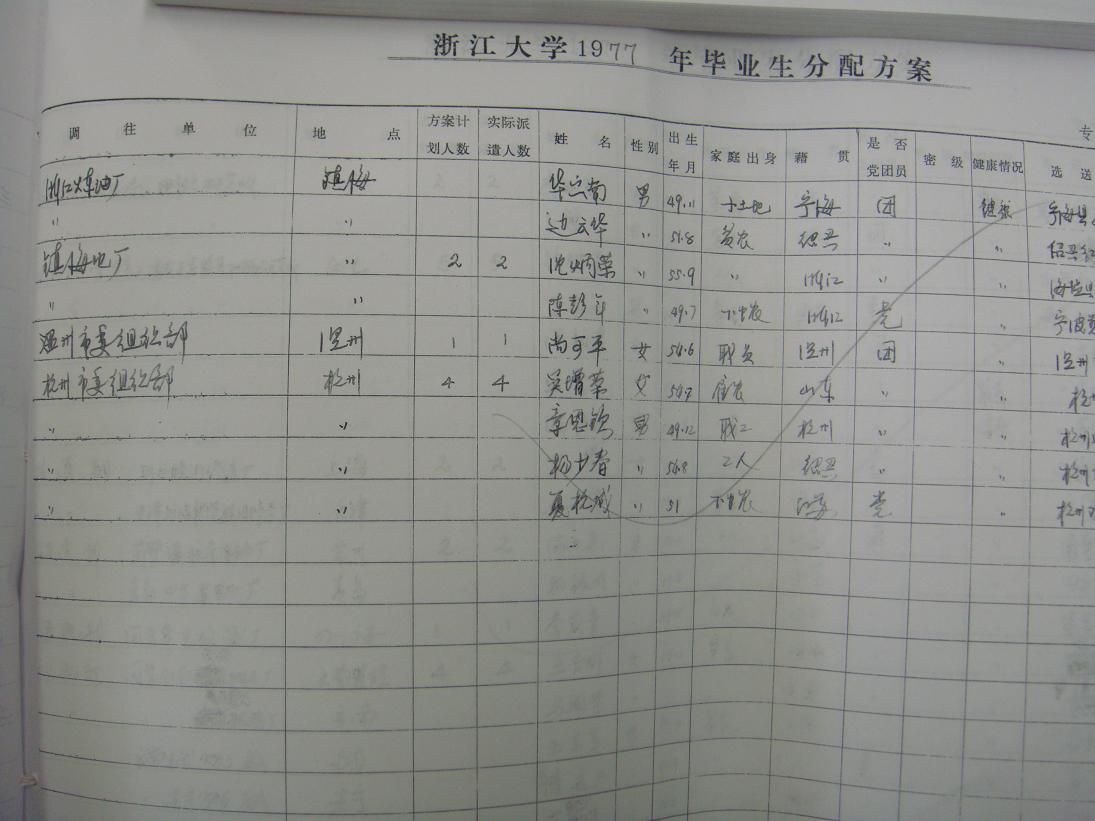 浙江大学1977年毕业生分配方案
专
调往单位 地点 方案计划人数 实际派遣人数 姓名 性别 出生年月 家庭出身 籍贯 是否党团员 密级 健康情况 选送
浙江炼油厂 镇海 男 49.11 小土地 宁海 团 健康 宁海县
〃 〃 边云华 〃 51.8 贫农 绍兴 〃 〃 绍兴
镇海电厂 〃 2 2 沈炳荣 〃 55.9 〃 浙江 〃 〃 海盐县
〃 〃 陈彭年 〃 49.7 下中农 浙江 党 〃 宁波
温州市委组织部 温州 1 1 尚可平 女 54.6 职员 温州 团 〃 温州
杭州市委组织部 杭州 4 4 吴增荣 女 54.9 雇农 山东 〃 〃 杭
〃 〃 章恩钦 男 49.12 职工 杭州 〃 〃 杭州
〃 〃 杨少春 〃 56.8 工人 绍兴 〃 〃 杭州
〃 〃 夏松城 〃 51 下中农 江苏 党 〃 杭州